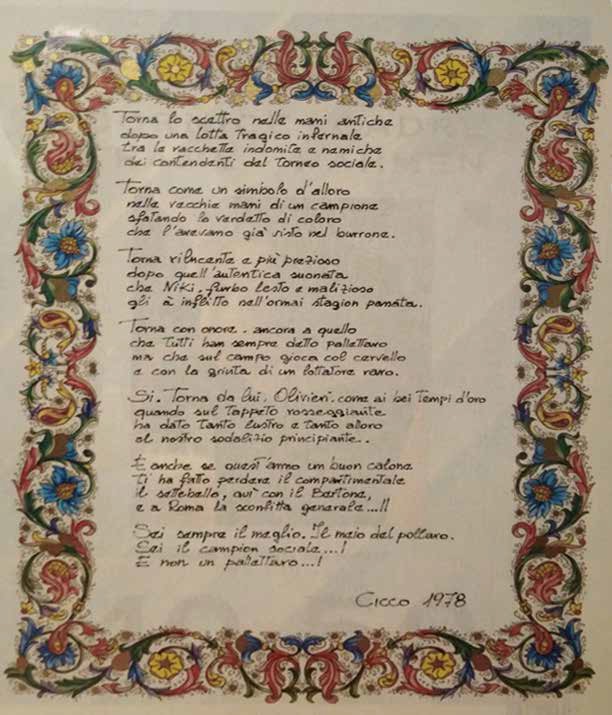 Torna lo scettro nelle mani antiche
dopo una lotta tragico infernale
tra le racchette indomite e nemiche
dei contendenti del Torneo sociale.
Torna come un simbolo d'alloro
nelle vecchie mani di un campione
sfatando lo verdetto di coloro
che l'avevamo già visto nel burrone.
Torna rilucente e più prezioso
dopo quell'autentica suonata
che Niki, furbo lesto e malizioso
gli à inflitto nell'ormai stagion passata.
Torna con onore, ancora a quello
che tutti han sempre detto pallettaro
ma che sul campo gioca col cervello
e con la grinta di un lottatore raro.
Si. Torna da lui, Olivieri, come ai bei tempi d'oro
quando sul tappeto rosseggiante
ha dato tanto lustro e tanto alloro
al nostro sodalizio principiante..
E anche se quest'anno un buon calone
ti ha fatto perdere il compartimentale
il settebello, qui con il Bertone,
e a Roma la sconfitta generale...!!
Sei sempre il meglio. Il meio del pollaro.
Sei il campion sociale...!
E non un pallettaro...!
Cicco 1978